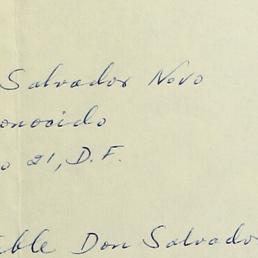 Salvador Novo
onocido
o 21, D.F.
ible Don Salvado